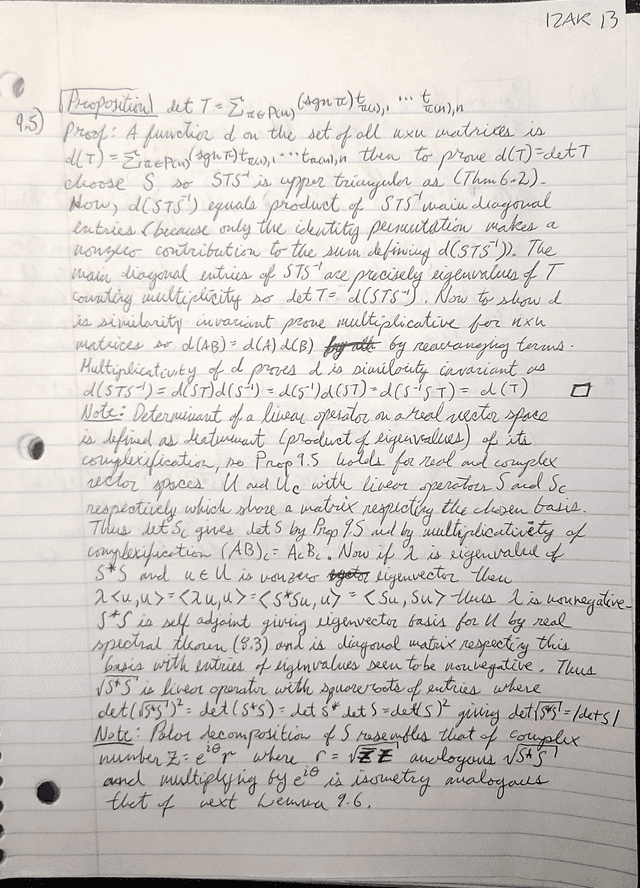 IZAK 13
9.5) Proposition det T = Σ_{π∈P(n)} (sgn π) t_{π(1),1} ⋯ t_{π(n),n}
Proof: A function d on the set of all nxn matrices is
d(T) = Σ_{π∈P(n)} (sgn π) t_{π(1),1} ⋯ t_{π(n),n} then to prove d(T)=det T
choose S so STS⁻¹ is upper triangular as (Thm 6.2).
Now, d(STS⁻¹) equals product of STS⁻¹ main diagonal
entries (because only the identity permutation makes a
nonzero contribution to the sum defining d(STS⁻¹)). The
main diagonal entries of STS⁻¹ are precisely eigenvalues of T
counting multiplicity so det T = d(STS⁻¹). Now to show d
is similarity invariant prove multiplicative for nxn
matrices so d(AB) = d(A) d(B) by rearranging terms.
Multiplicativity of d proves d is similarity invariant as
d(STS⁻¹) = d(ST)d(S⁻¹) = d(S⁻¹)d(ST) = d(S⁻¹ST) = d(T) □
Note: Determinant of a linear operator on a real vector space
is defined as (product of eigenvalues) of its
complexification, so Prop 9.5 holds for real and complex
vector spaces U and U_C with linear operators S and S_C
respectively which share a matrix respecting the chosen basis.
Thus det S_C gives det S by Prop 9.5 and by multiplicativity of
complexification (AB)_C = A_C B_C. Now if λ is eigenvalue of
S*S and u ∈ U is nonzero eigenvector then
λ<u,u> = <λu,u> = <S*Su,u> = <Su,Su> thus λ is nonnegative.
S*S is self adjoint giving eigenvector basis for U by real
spectral theorem (8.3) and is diagonal matrix respecting this
basis with entries of eigenvalues seen to be nonnegative. Thus
√S*S is linear operator with squareroots of entries where
det(√S*S)² = det(S*S) = det S* det S = det(S)² giving det√S*S = |det S|
Note: Polar decomposition of S resembles that of complex
number Z = e^{iθ} r where r = √Z̄Z analogous √S*S
and multiplying by e^{iθ} is isometry analogous
that of next Lemma 9.6.